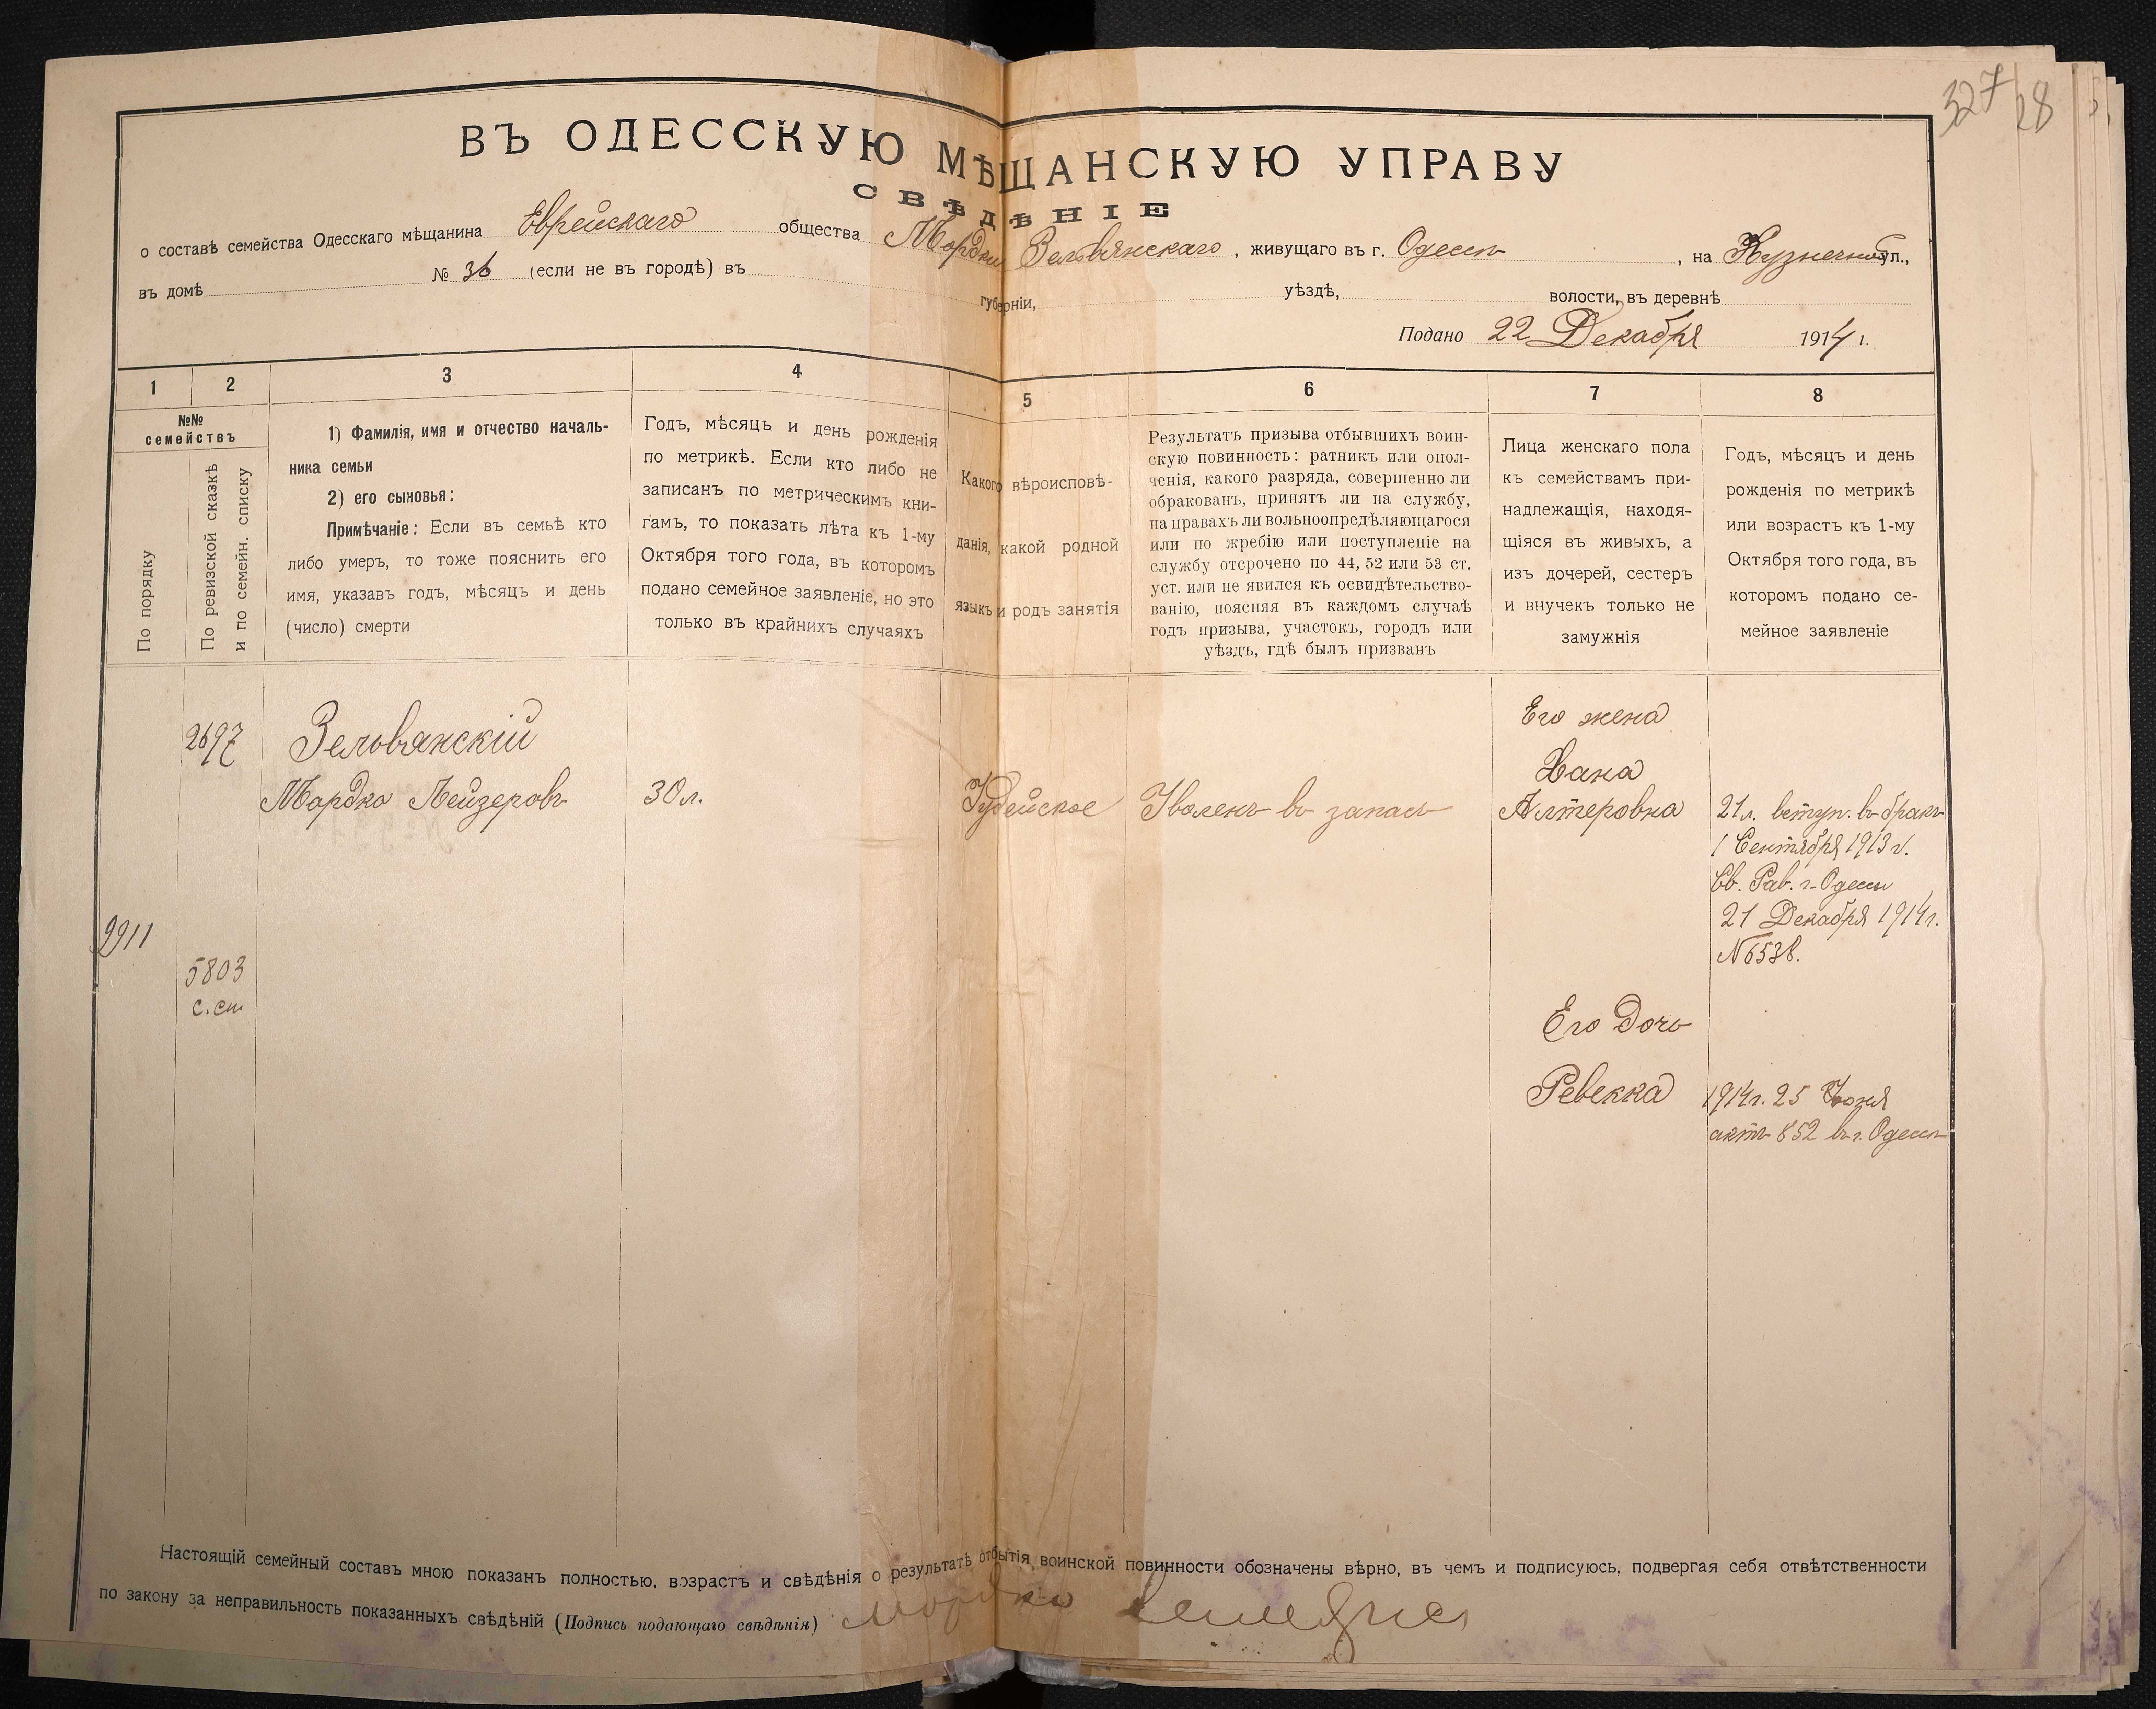 327
28
ВЪ ОДЕССКУЮ МѢЩАНСКУЮ УПРАВУ
СВѢДѢНІЕ
о составѣ семейства Одесскаго мѣщанина Еврейскаго общества Мордки Зельвянскаго, живущаго въ г. Одессѣ, на Кузнечной ул.,
въ домѣ № 36 (если не въ городѣ) въ губерніи, уѣздѣ, волости, въ деревнѣ
Подано 22 Декабря 1914 г.
1
2
3
4
5
6
7
8
№№
семействъ
По порядку
По ревизской сказкѣ
и по семейн. списку
1) Фамилія, имя и отчество началь-
ника семьи
2) его сыновья:
Примѣчаніе: Если въ семьѣ кто
либо умеръ, то тоже пояснить его
имя, указавъ годъ, мѣсяцъ и день
(число) смерти
Годъ, мѣсяцъ и день рожденія
по метрикѣ. Если кто либо не
записанъ по метрическимъ кни-
гамъ, то показать лѣта къ 1-му
Октября того года, въ которомъ
подано семейное заявленіе, но это
только въ крайнихъ случаяхъ
Какого вѣроисповѣ-
данія, какой родной
языкъ и родъ занятія
Результатъ призыва отбывшихъ воин-
скую повинность: ратникъ или опол-
ченія, какого разряда, совершенно ли
обракованъ, принятъ ли на службу,
на правахъ ли вольноопредѣляющагося
или по жребію или поступленіе на
службу отсрочено по 44, 52 или 53 ст.
уст. или не явился къ освидѣтельство-
ванію, поясняя въ каждомъ случаѣ
годъ призыва, участокъ, городъ или
уѣздъ, гдѣ былъ призванъ
Лица женскаго пола
къ семействамъ при-
надлежащія, находя-
щіяся въ живыхъ, а
изъ дочерей, сестеръ
и внучекъ только не
замужнія
Годъ, мѣсяцъ и день
рожденія по метрикѣ
или возрастъ къ 1-му
Октября того года, въ
которомъ подано се-
мейное заявленіе
2697
Зельвянскій
Мордко Лейзеровъ
30 л.
Іудейское
Уволенъ въ запасъ
Его жена
Хана
Алтеровна
21 л. вступ. въ бракъ
1 Сентября 1913 г.
Св. Рав. г. Одессы
21 Декабря 1914 г.
№ 6538.
2911
5803
с. сп.
Его Дочь
Ревекка
1914 г. 25 Іюня
актъ 852 въ г. Одессѣ
Настоящій семейный составъ мною показанъ полностью, возрастъ и свѣдѣнія о результатѣ отбытія воинской повинности обозначены вѣрно, въ чемъ и подписуюсь, подвергая себя отвѣтственности
по закону за неправильность показанныхъ свѣдѣній (Подпись подающаго свѣдѣнія) Мордко